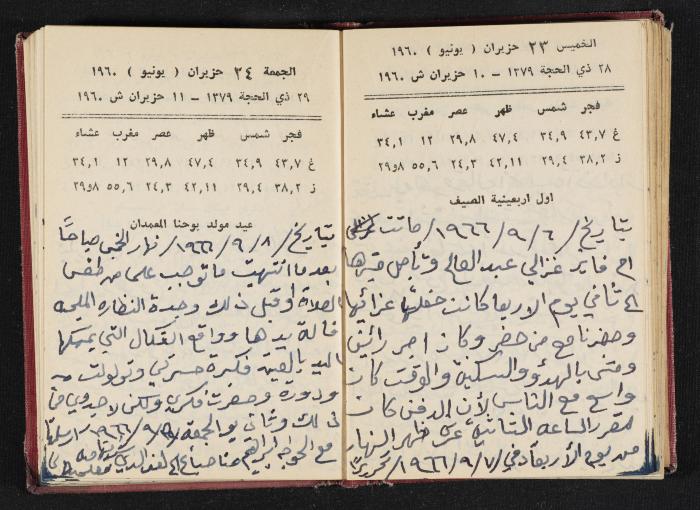 الخميس ٢٣ حزيران ( يونيو ) ١٩٦٠
٢٨ ذي الحجة ١٣٧٩ – ١٠ حزيران ش ١٩٦٠
فجر شمس ظهر عصر مغرب عشاء
غ ٤٣,٧ ٣٤,٩ ٤٧,٤ ٢٩,٨ ١٢ ٣٤,١
ز ٣٨,٢ ٢٩,٤ ٤٢,١١ ٢٤,٣ ٥٥,٦ ٢٩و٨
اول اربعينية الصيف
بتاريخ / ٦ / ٩ / ١٩٦٦ / ماتت
ام فايز غزالي عبد الفالح وتأجل قبرها
الى ثاني يوم الاربعا كانت حفلة عزائها
وحضرنا مع من حضر وكان اجر رائيق
ومتى بالهدؤ والسكينة والوقت كان
واسع مع الناس لأن الدفن كان
مقرر الساعه الثانية ظهر النهار
من يوم الأربعاء في / ٧ / ٩ / ١٩٦٦ / تحريرًا
الجمعة ٢٤ حزيران ( يونيو ) ١٩٦٠
٢٩ ذي الحجة ١٣٧٩ – ١١ حزيران ش ١٩٦٠
فجر شمس ظهر عصر مغرب عشاء
غ ٤٣,٧ ٣٤,٩ ٤٧,٤ ٢٩,٨ ١٢ ٣٤,١
ز ٣٨,٢ ٢٩,٤ ٤٢,١١ ٢٤,٣ ٥٥,٦ ٢٩و٨
عيد مولد يوحنا المعمدان
بتاريخ / ٨ / ٩ / ١٩٦٦ / نهار الخميس صباحًا
بعد ما انتهيت ما توجب علي من طقس
الصلاة اوقبل ذلك وجدة النظاره المليحه
فالة يدها وواقع الفكال التي يمسكها
اليد بالعية فكرة حسرتي وتولولت
ودورة وحضرت فكري ولكن لا جدوى من
ذلك وثاني يوم الجمعة / ٩ / ٩ / ١٩٦٦ / ارسلتها
مع الخواجه ابراهيم صباغ الى